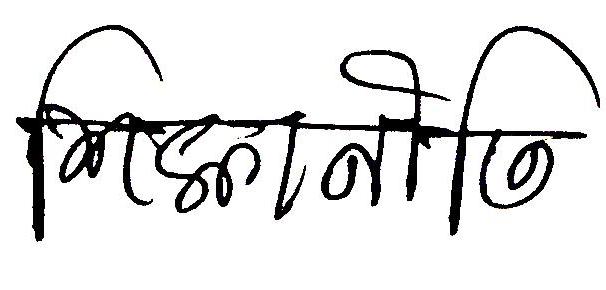 শিক্ষানীতি